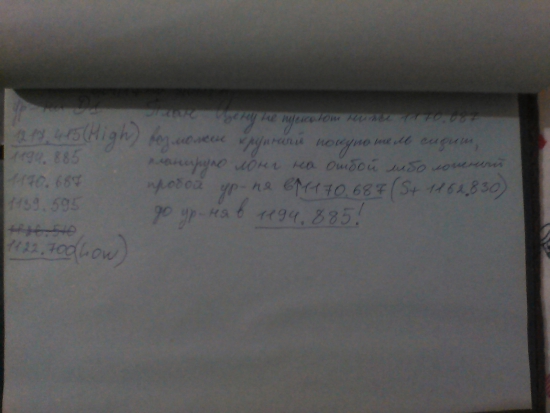 ур-ни D1
217.415(High)
1194.885
1170.687
1159.595
1122.700(Low)
План Цену не пускают ниже 1170.687
возможен крупный покупатель сидит,
планирую лонг на отбой либо ложный
пробой ур-ня в 1170.687 (St 1162.830)
до ур-ня в 1194.885!